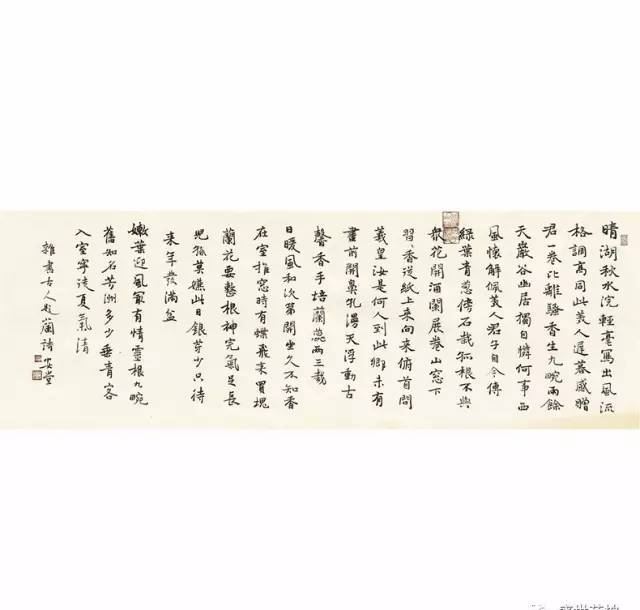 晴湖秋水浣輕毫寫出風流
格調高同此美人遲暮感贈
君一卷比離騷香生九畹雨餘
天巖谷幽居獨自憐何事西
風懷解佩美人君子自今傳
綠葉青葱傍石栽孤根不與
衆花開酒闌展卷山窓下
習々香從紙上來向來俯首問
羲皇汝是何人到此鄉未有
畫前開鼻孔漫天浮動古
馨香手培蘭蕊兩三栽
日暖風和次第開坐久不知香
在室推窓時有蝶飛來買塊
蘭花要整根神完氣足長
兒孫莫嫌此日銀芽少只待
来年發滿盆
嫩葉迎風有情靈根九畹
舊知名芳洲多少垂青客
入室寧夏氣清
雜書古人題蘭詩 堂